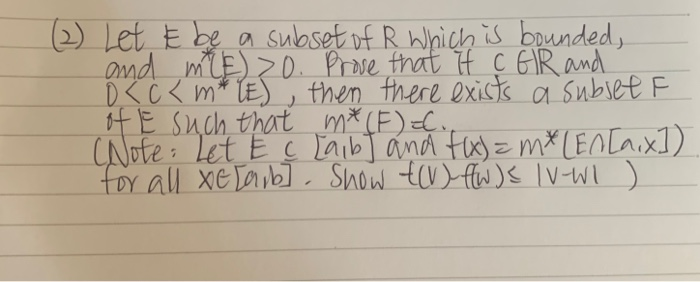 (2) Let E be a subset of R which is bounded,
and m*(E) > 0. Prove that if C ∈ IR and
0 < C < m*(E), then there exists a subset F
of E such that m*(F) = C.
(Note: Let E ⊆ [a,b] and f(x) = m*(E∩[a,x])
for all x∈[a,b]. Show f(v)-f(w) ≤ |v-w| )